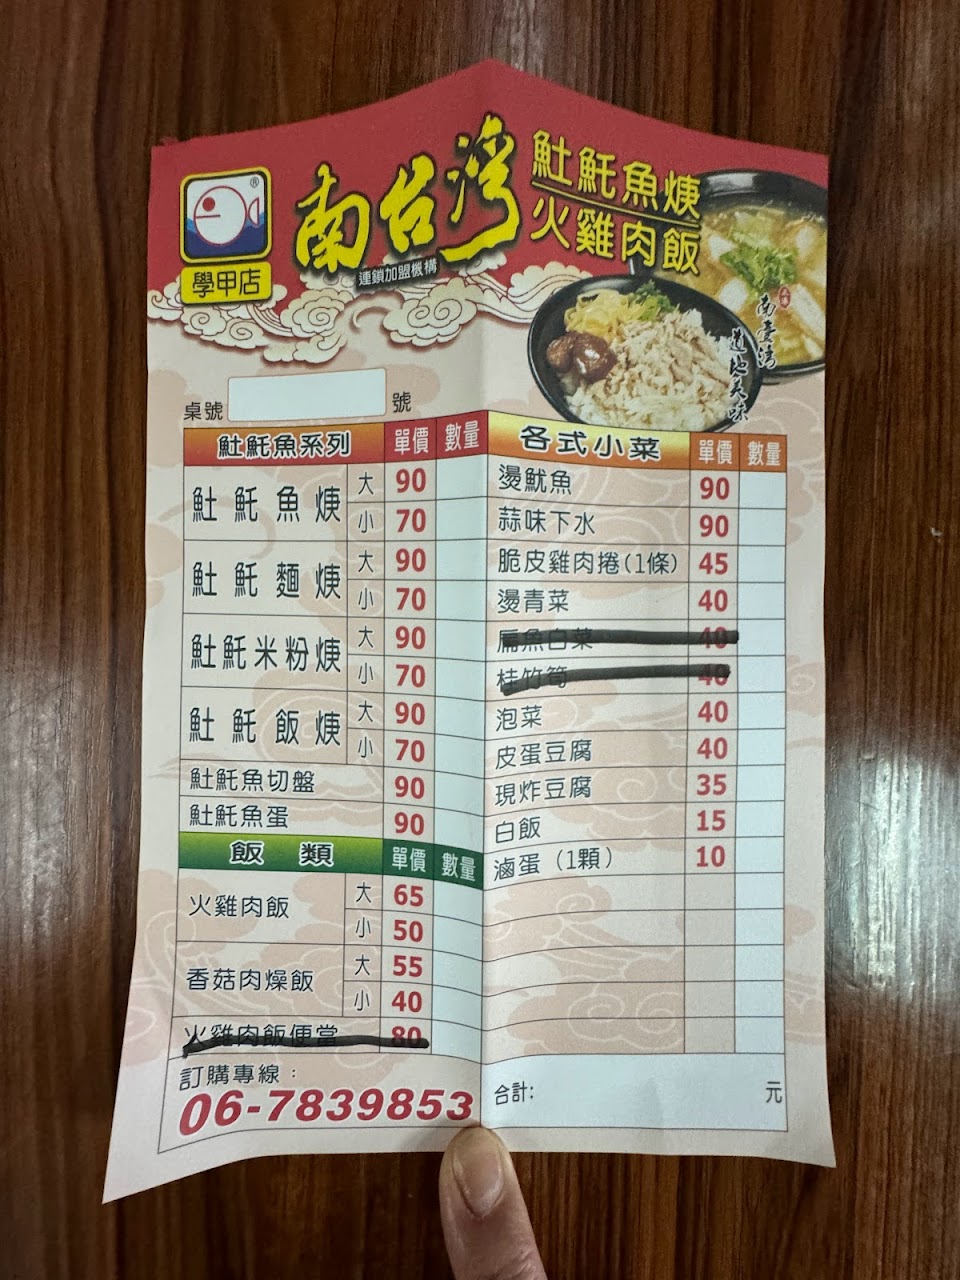 ®
南台灣
連鎖加盟機構
學甲店
𩵚魠魚焿
火雞肉飯
南臺灣
道地美味
桌號 號
𩵚魠魚系列 單價 數量
𩵚魠魚焿 大 90
小 70
𩵚魠麵焿 大 90
小 70
𩵚魠米粉焿 大 90
小 70
𩵚魠飯焿 大 90
小 70
𩵚魠魚切盤 90
𩵚魠魚蛋 90
飯類 單價 數量
火雞肉飯 大 65
小 50
香菇肉燥飯 大 55
小 40
火雞肉飯便當 80
訂購專線：
06-7839853
各式小菜 單價 數量
燙魷魚 90
蒜味下水 90
脆皮雞肉捲(1條) 45
燙青菜 40
扁魚白菜 40
桂竹筍 40
泡菜 40
皮蛋豆腐 40
現炸豆腐 35
白飯 15
滷蛋（1顆） 10
合計: 元